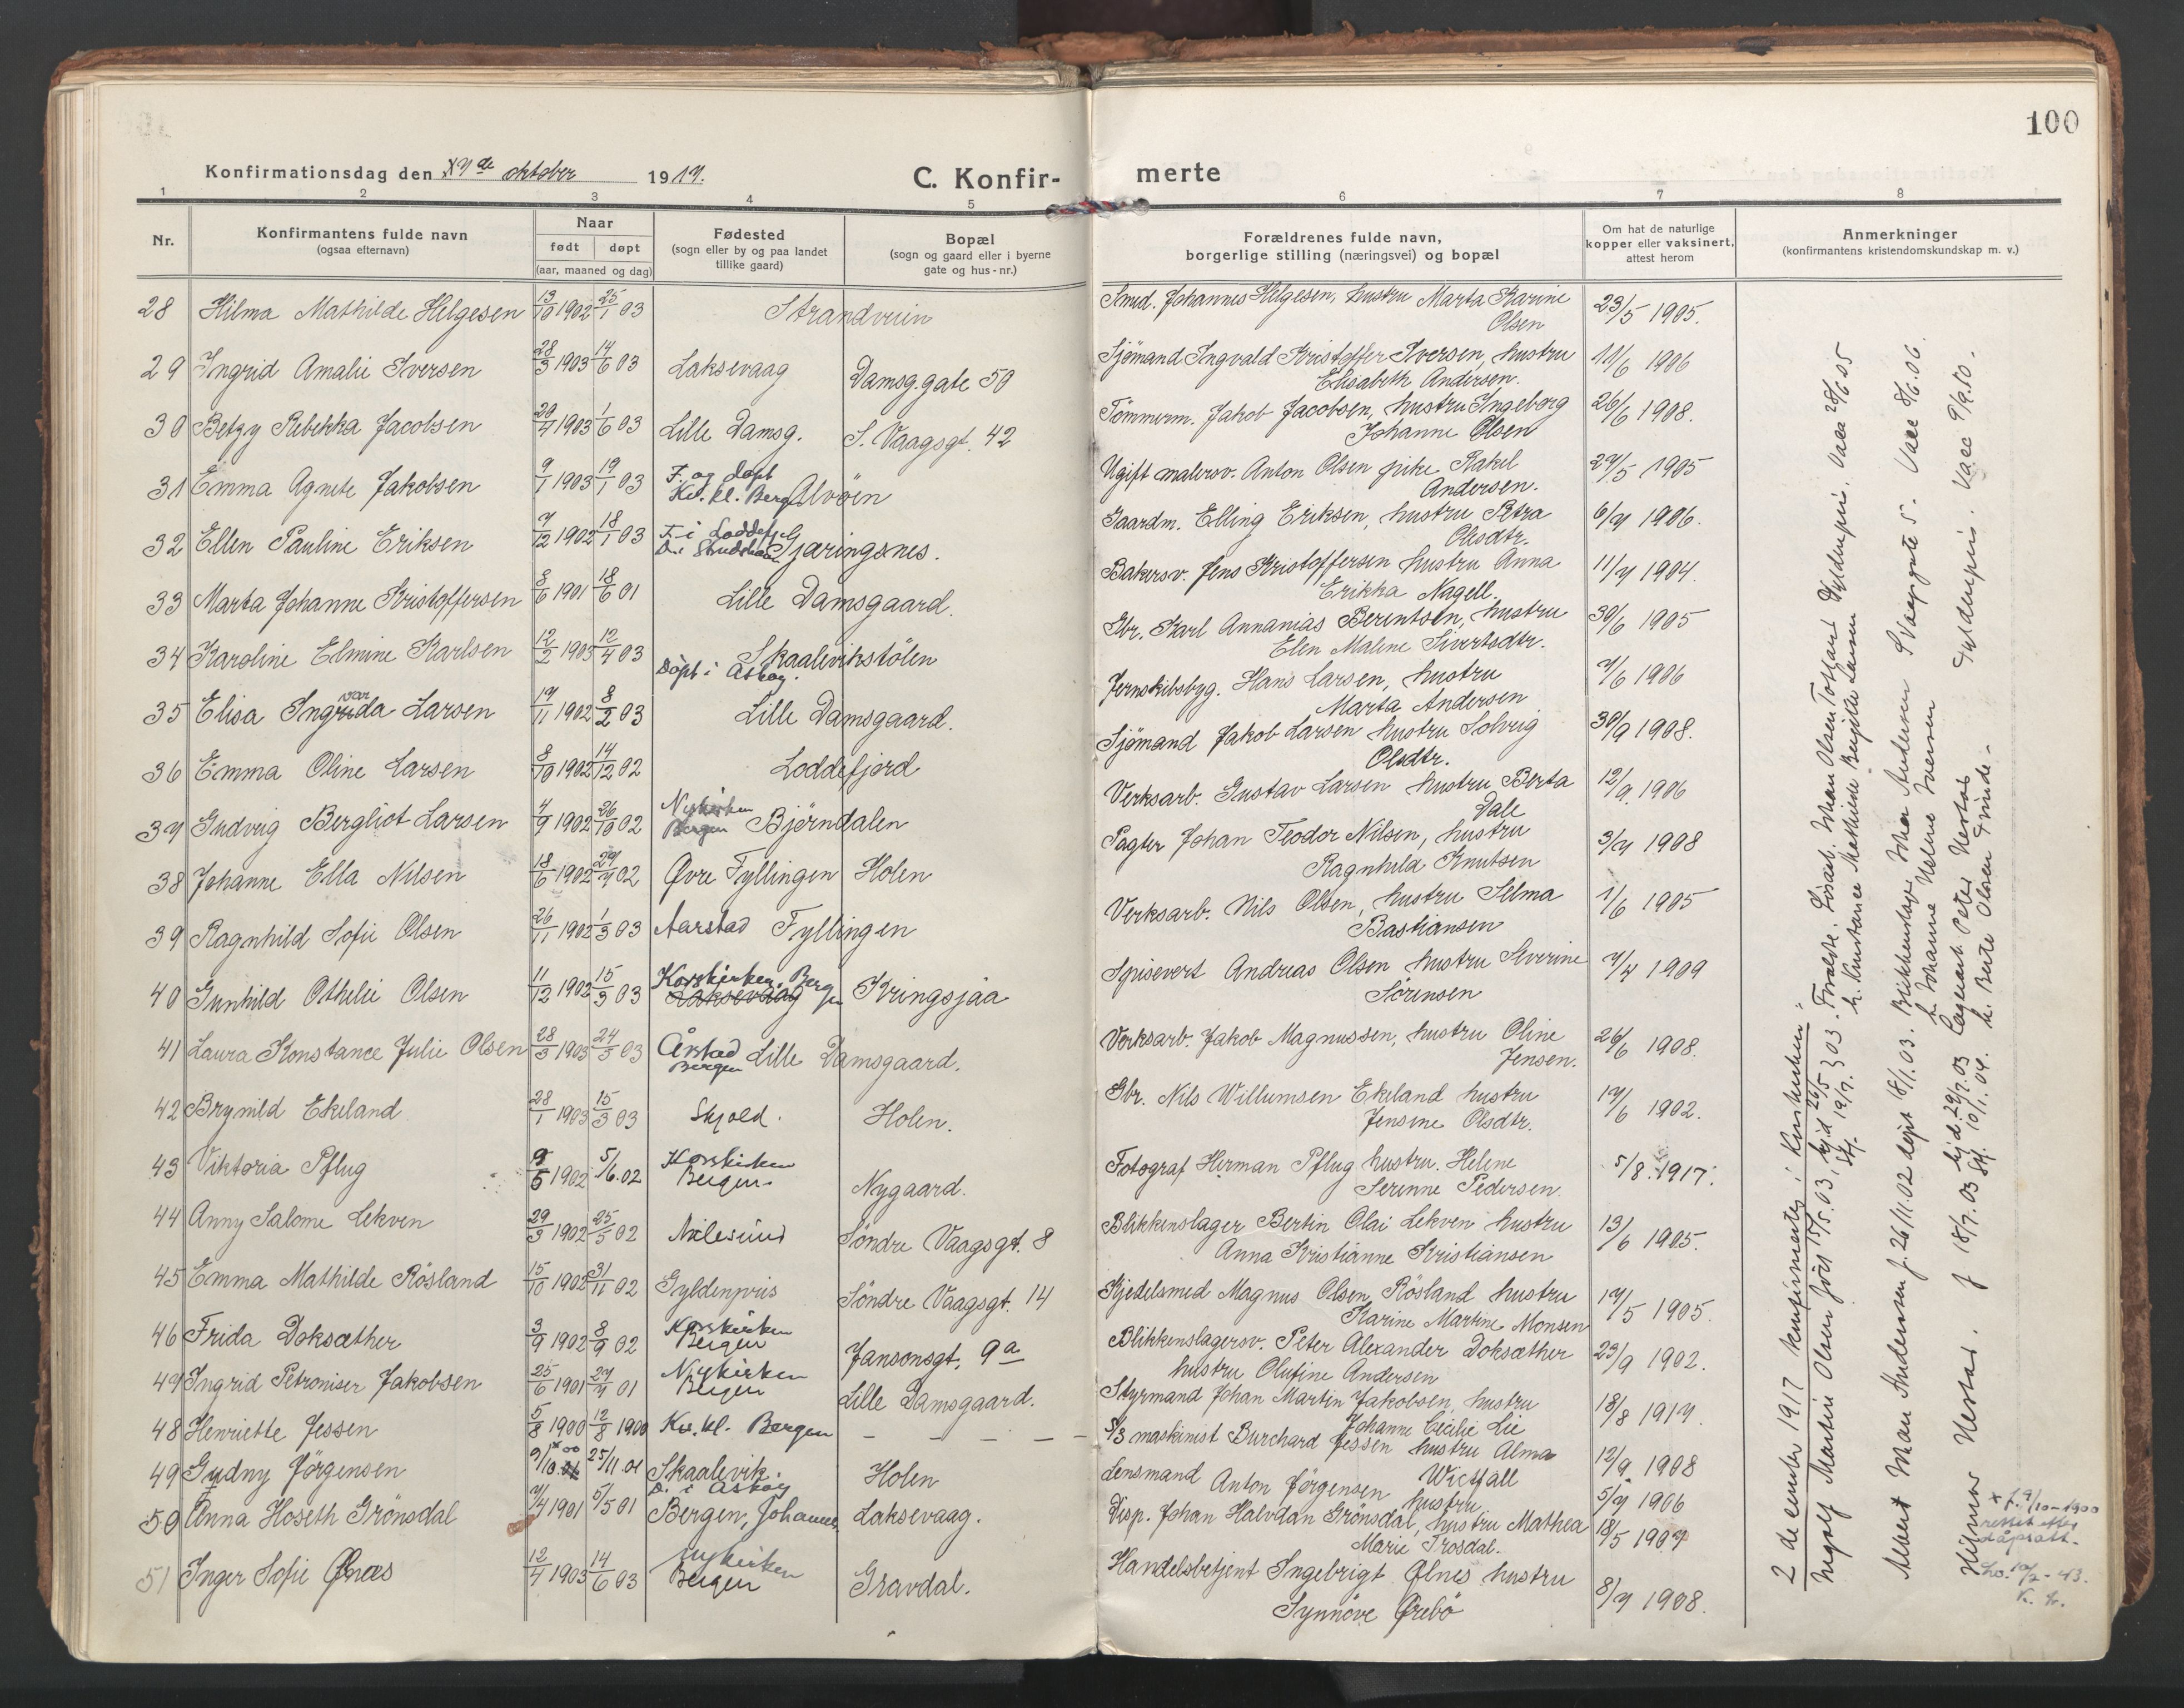 100
Konfirmationsdag den oktober 1917. C. Konfir- merte
1 2 3 4 5 6 7 8
Nr. Konfirmantens fulde navn (ogsaa efternavn) Naar født døpt (aar, maaned og dag) Fødested (sogn eller by og paa landet tillike gaard) Bopæl (sogn og gaard eller i byerne gate og hus-nr.) Forældrenes fulde navn, borgerlige stilling (næringsvei) og bopæl Om hat de naturlige kopper eller vaksinert, attest herom Anmerkninger (konfirmantens kristendomskundskap m. v.)
28 Hilma Mathilde Helgesen 13/10 1902 25/1 03 Strandveien Smed. Johannes Helgesen, hustru Marta Karine Olsen 23/5 1905.
29 Ingrid Amalie Iversen 28/3 1903 14/6 03 Laksevaag Damsg.gate 50 Sjømand Ingvald Kristoffer Iversen, hustru Elisabeth Andersen. 11/6 1906
30 Betzy Rebekka Jacobsen 20/4 1903 1/6 03 Lille Damsg. S. Vaagsgt. 42 Tømmerm. Jakob Jacobsen, hustru Ingeborg Johanne Olsen 26/6 1908.
31 Emma Agnete Jakobsen 9/1 1903 19/1 03 F. og døpt Kv. kl. Berg Alvøen Ugift malersv. Anton Olsen pike Rakel Andersen. 27/5 1905
32 Ellen Pauline Eriksen 7/12 1902 18/1 03 F. i Loddefj. D. i Gjæringsnes. Gaardm. Elling Eriksen, hustru Petra Olesdtr. 6/7 1906.
33 Marta Johanne Kristoffersen 8/6 1901 18/6 01 Lille Damsgaard. Bakersv. Jens Kristoffersen hustru Anna Erikka Nagell. 11/7 1904.
34 Karoline Elmine Karlsen 12/2 1903 12/4 03 Skaalevikstølen Døpt i Askøy. Gbr. Karl Annanias Berintsen, hustru Elen Malene Sivertsdtr. 30/6 1905
35 Elisa Ingvarda Larsen 17/11 1902 8/2 03 Lille Damsgaard. Jernskibsbyg. Hans Larsen, hustru Marta Andersen 7/6 1906
36 Emma Oline Larsen 8/10 1902 14/12 02 Loddefjord Sjømand Jakob Larsen hustru Solveig Olsdtr. 30/9 1908.
37 Gudveig Bergliot Larsen 4/9 1902 26/10 02 Nykirken Bergen Bjørndalen Verksarb. Gustav Larsen hustru Berta Dale 12/9. 1906
38 Johanne Ella Nilsen 18/6 1902 27/7 02 Øvre Fyllingen Holen Pagter Johan Teodor Nilsen, hustru Ragnhild Knutsen 3/7 1908
39 Ragnhild Sofie Olsen 26/11 1902 1/3 03 Aarstad Fyllingen Verksarb. Nils Olsen, hustru Selma Bastiansen 1/6 1905
40 Gunhild Othelie Olsen 11/12 1902 15/3 03 Korskirken, Bergen Laksevaag Kringsjaa Spisevert Andreas Olsen hustru Severine Sørensen 7/4 1909
41 Laura Konstance Julie Olsen 28/3 1903 24/5 03 Årstad Bergen Lille Damsgaard. Verksarb. Jakob Magnussen, hustru Oline Jensen. 26/6 1908.
42 Brynild Ekeland 28/1 1903 15/3 03 Skjold. Holen. Gbr. Nils Willumsen Ekeland hustru Jensine Olsdtr. 17/6 1902.
43 Viktoria Pflug 9/5 1902 5/6.02 Korskirken Bergen Nygaard. Fotograf Herman Pflug hustru. Helene Serenne Pedersen. 5/8. 1917.
44 Anny Salome Lekven 29/3 1902 25/5 02 Aalesund Søndre Vaagsgt. 8 Blikkenslager Bertin Olai Lekven hustru Anna Kristianne Kristiansen 13/6 1905.
45 Emma Mathilde Røsland 15/10 1902 31/11 02 Gyldenpris Søndre Vaagsgt. 14 Kjedelsmed Magnus Olsen Røsland hustru Karine Martine Monsen 19/5 1905.
46 Frida Doksæther 3/9 1902 8/9 02 Korskirken Bergen Jansonsgt. 9a Blikkenslagersv. Peter Alexander Doksæther hustru Olufine Andersen 23/9 1902.
47 Ingrid Petroniser Jakobsen 25/6 1901 27/7 01 Nykirken Bergen Lille Damsgaard. Styrmand Johan Martin Jakobsen, hustru Johanne Cecilie Lie 18/8 1917.
48 Henriette Jessen 5/8 1900 12/8 1900 Kv. kl. Bergen – – – – S/S maskinist Burchard Jessen hustru Alma Wictfall 12/9 1908
49 Gudny Jørgensen 9/10 00 25/11.01 Skaalevik. D. i Askøy Holen Lensmand Anton Jørgensen hustru 5/7 1906
50 Anna Hoseth Grönsdal 7/4 1901 5/5 01 Bergen, Johannes Laksevaag. Disp. Johan Halvdan Grönsdal, hustru Mathea Marie Trosdal. 18/5 1907
51 Inger Sofie Ølnæs 12/4 1903 14/6 03 Nykirken Bergen Gravdal. Handelsbetjent Ingebrigt Ølnes hustru Synnöve Ørebö 8/7 1908.
2 december 1917 konfirmertes i Kirken:
Ingolf Martin Olsen født 15/5.03, hjd 26/5 Stf. 19/7.03. Foræl­dre: Johan Olsen Gyldenpris. Vacc 28/6 05
h. Konstance Mathine Larsen
Albert Johan Andersen f. 26/11.02 døpt 18/1.03. Blikkenslager Johan Andersen S Vaagsgate 5. Vacc 8/6.06.
h. Johanne Helene Iversen
Hilmar Herstad. f 18/7.03 hjd 29/7.03 Stf. 10/1.04. Lagerarb. Peter Herstad Gyldenpris. Vacc 9/9.10.
h. Berte Olsen Trinde.
x f. 9/10-1900 rettet efter dåpsatt.